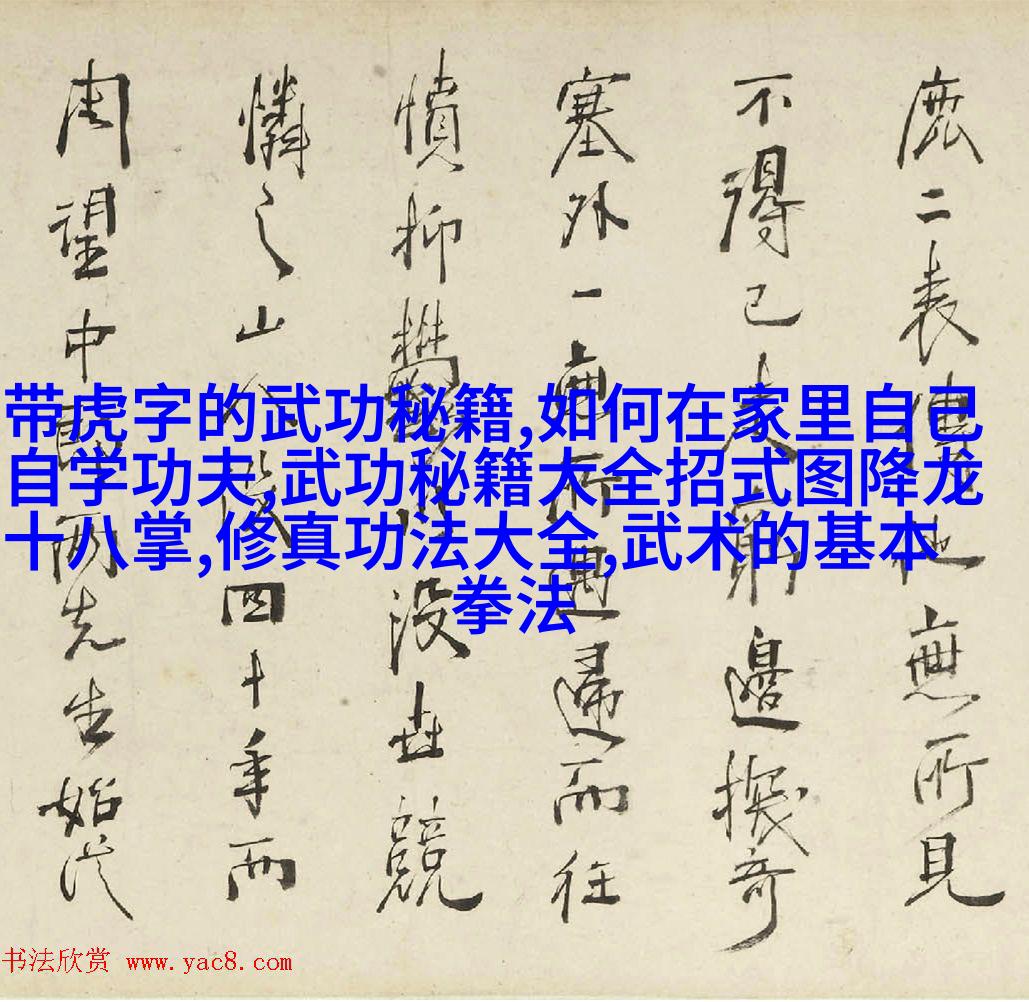 二表應所見
不得已窮邊探奇
塞外一應所遇而往
憤抑鬱沒世競
憐之山四十年而
周望中郎兩先生始從
带虎字的武功秘籍,如何在家里自己
自学功夫,武功秘籍大全招式图降龙
十八掌,修真功法大全,武术的基本
拳法
书法欣赏 www.yac8.com